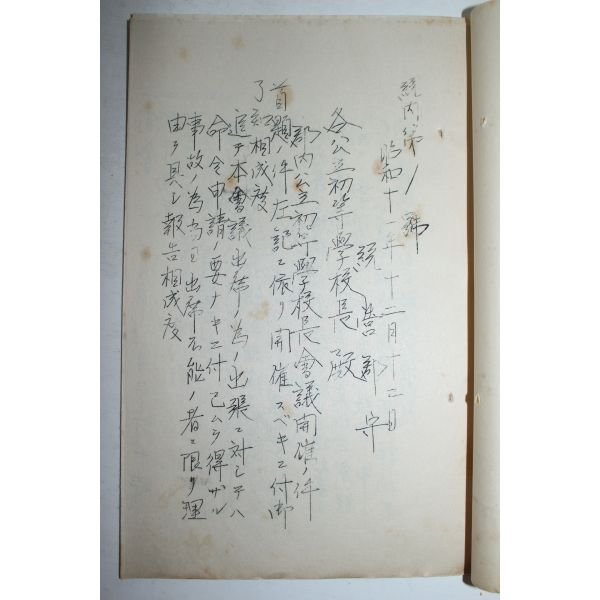 統内第一號
昭和十一年十二月十二日
統營郡守
各公立初等學校長殿
郡内公立初等學校長會議開催ノ件
首題ノ件左記ニ依リ開催スベキニ付御
了知相成度
追テ本會議出席ノ為ノ出張ニ対シテハ
命令申請ノ要ナキニ付已ムヲ得ザル
事故ノ為当日出席不能ノ者ニ限リ理
由ヲ具シ報告相成度